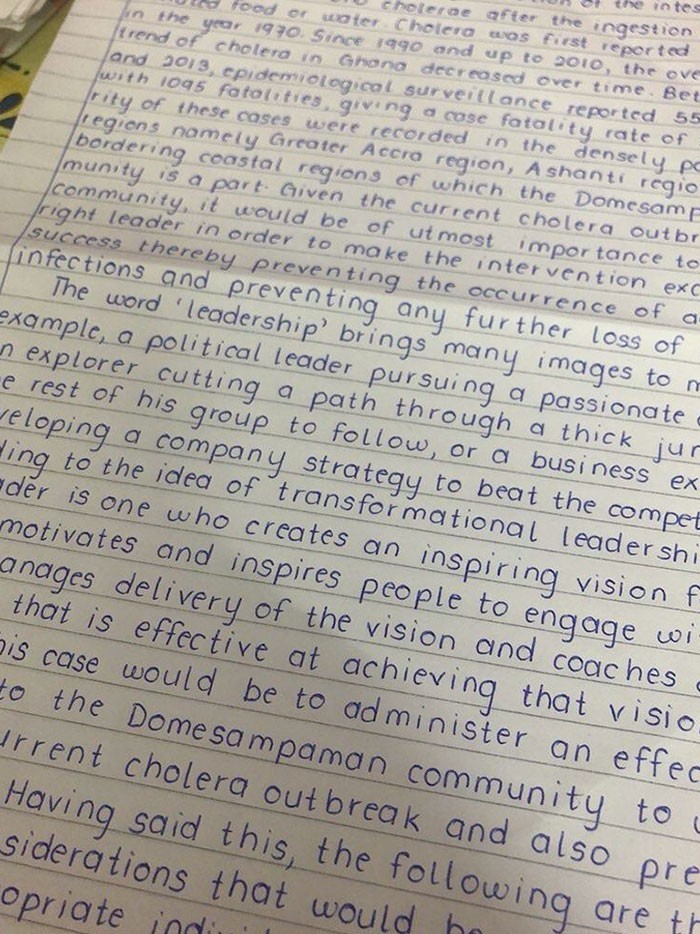 cholerae after the ingestion
food or water. Cholera was first reported
in the year 1970. Since 1990 and up to 2010, the
trend of cholera in Ghana decreased over time.
and 2013, epidemiological surveillance reported 55
with 1095 fatalities, giving a case fatality rate of
rity of these cases were recorded in the densely
regions namely Greater Accra region, Ashanti regio
bordering coastal regions of which the Domesam
munity is a part. Given the current cholera outbr
community, it would be of utmost importance to
right leader in order to make the intervention exc
success thereby preventing the occurrence of a
infections and preventing any further loss of
The word 'leadership' brings many images to m
example, a political leader pursuing a passionate
n explorer cutting a path through a thick jun
e rest of his group to follow, or a business ex
veloping a company strategy to beat the compet
ding to the idea of transformational leadershi
der is one who creates an inspiring vision f
motivates and inspires people to engage wi
anages delivery of the vision and coaches
that is effective at achieving that visio
his case would be to administer an effec
to the Domesampaman community to
urrent cholera outbreak and also pre
Having said this, the following are th
siderations that would be
opriate